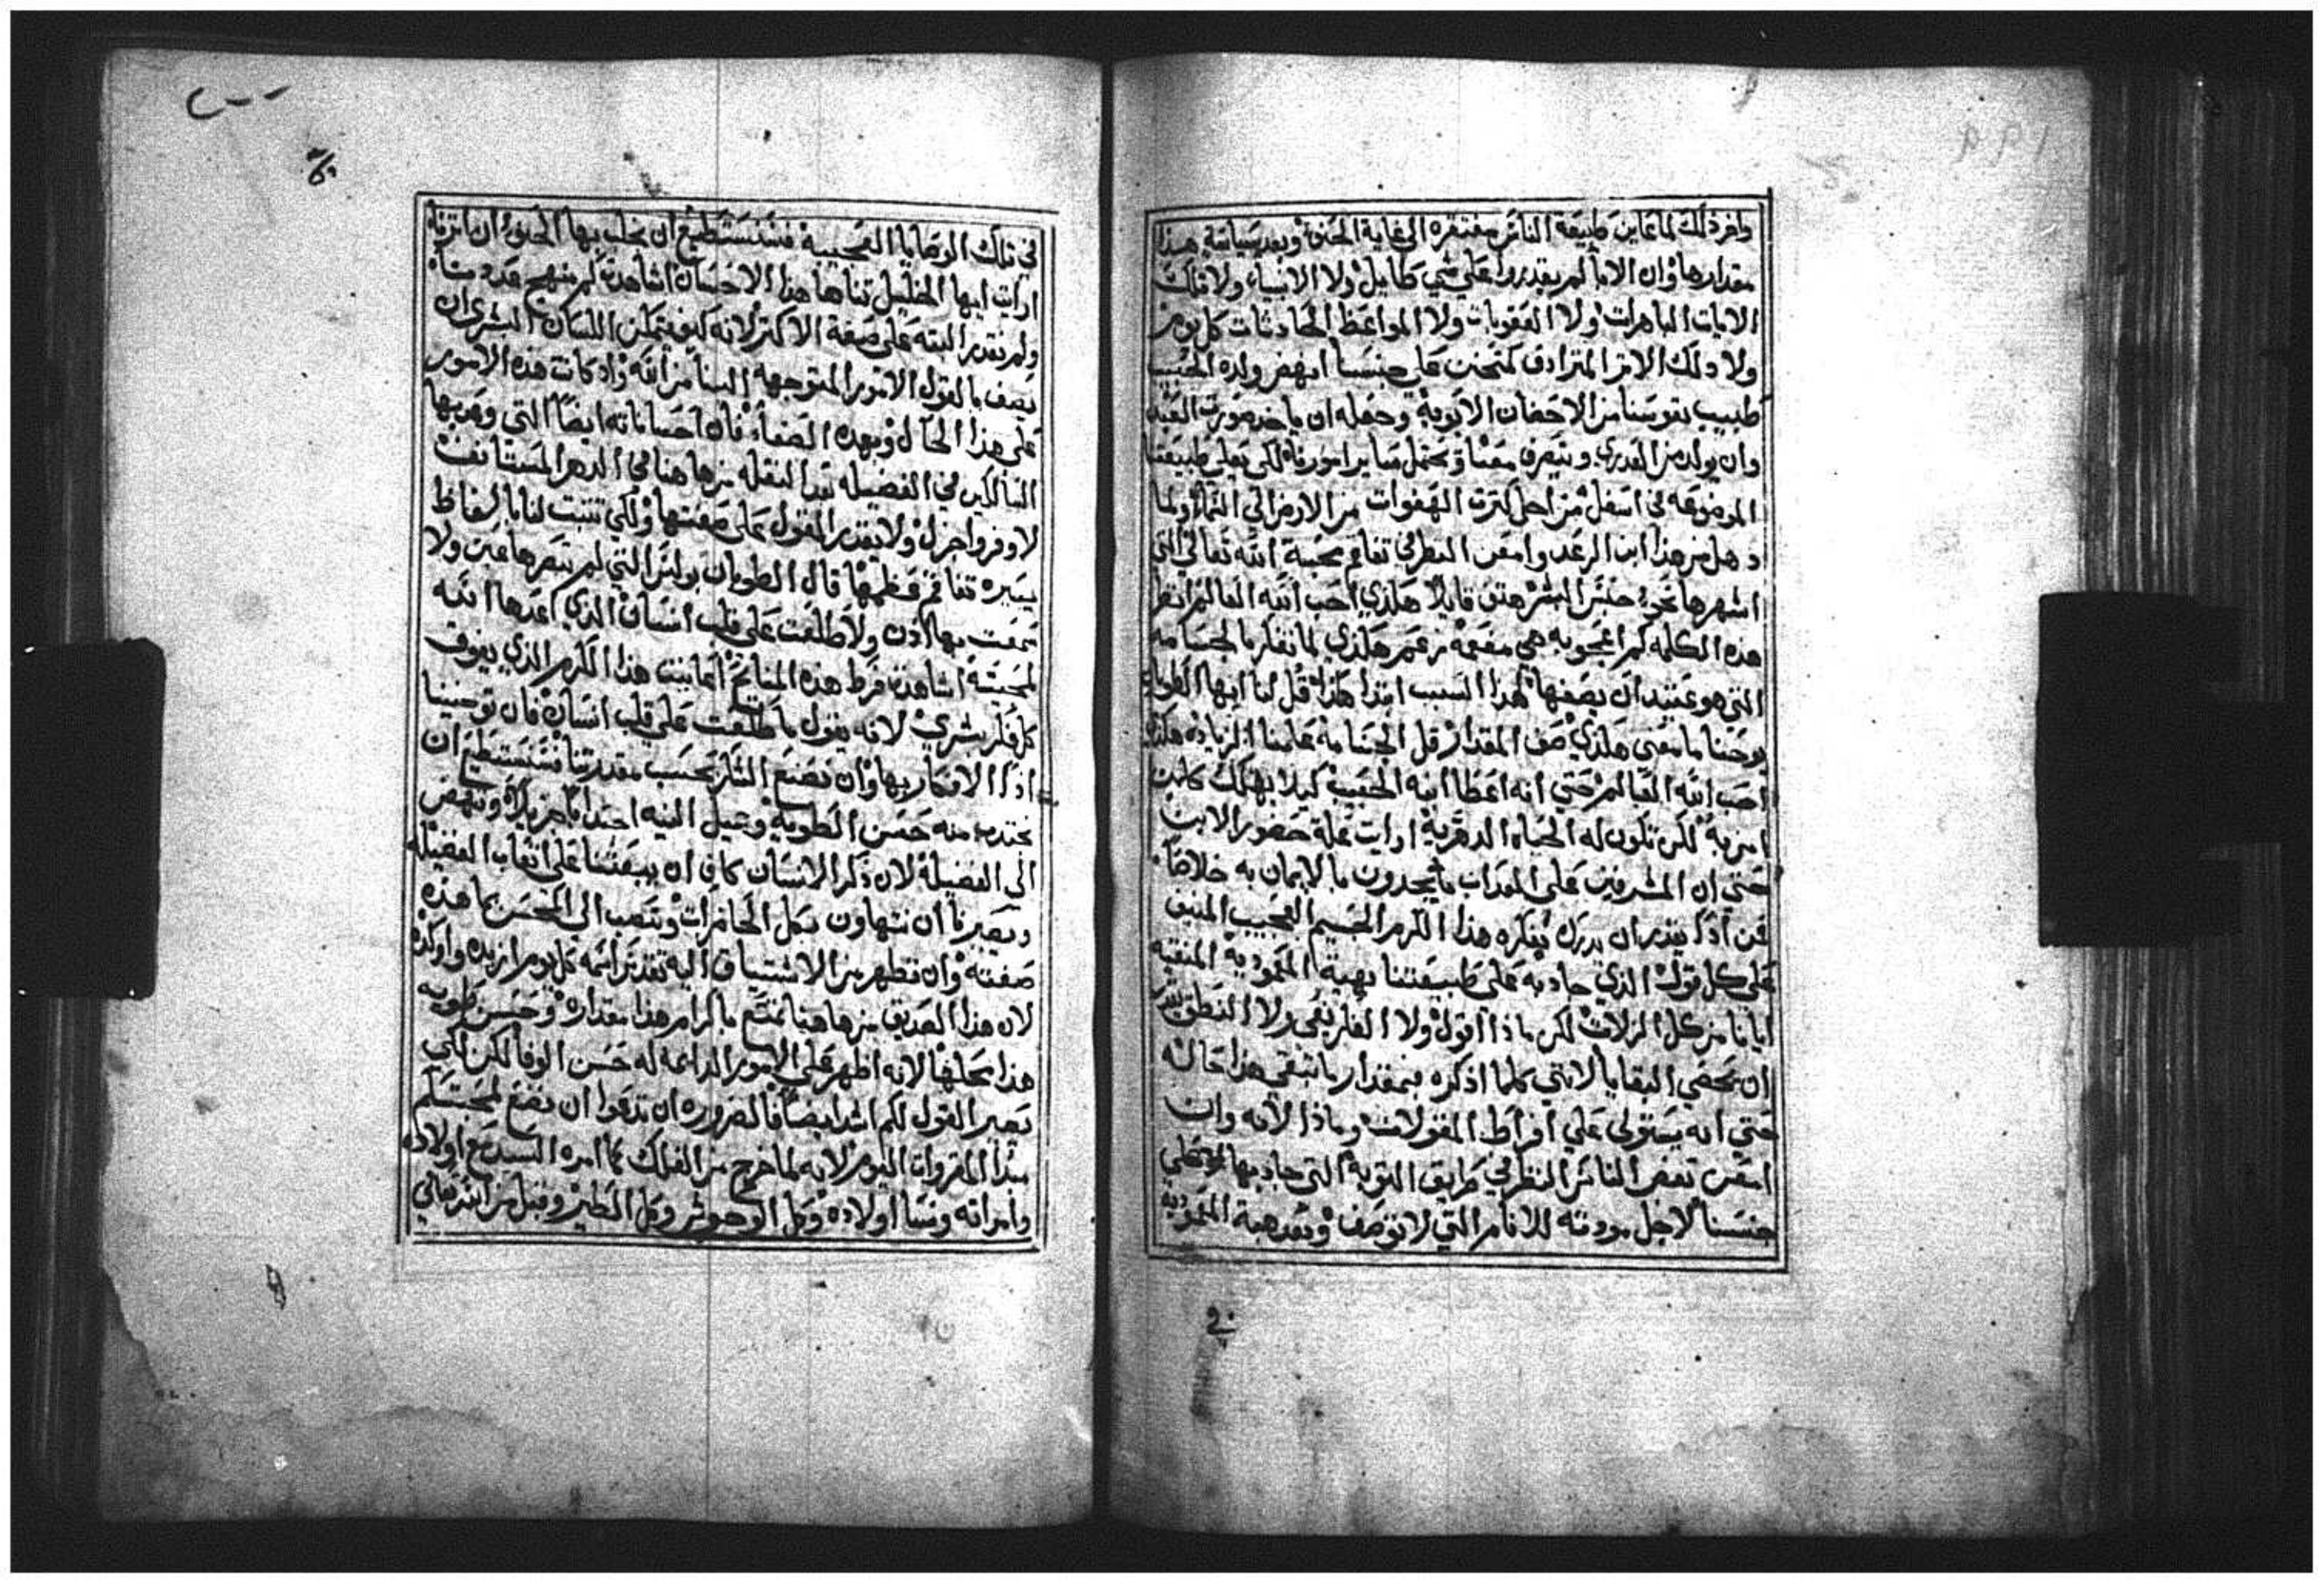 وافرد لك لما عاين طبيعة الناس مفتقره الي غاية الحنو وبعد سياسة هذا
مقدارها وان الابا لم يقدروا علي شي طايل ولا الانبياء ولا تلك
الايات الباهرات ولا العقوبات ولا المواعظ الحادثات كل يوم
ولا ذلك الاسر المترادف كتحنن علي جنسنا انهض ولده الحبيب
طبيب نفوسنا من الاحضان الابوية وجعله ان ياخد صورة العبد
وان يولد من العذري ويتصرف معنا ويحتمل ساير امورنا لكي يعلي طبيعتنا
الموضوعه في اسفل من اجل كثرت الهفوات من الارض الي السماء ولما
دهل من هذا ابن الرعد وامعن النظر في تفاقم محبة الله تعالي التي
اشهرها نحو جنس البشر هتف قايلا هكذي احب الله العالم انظر
هذه الكلمه كم اعجوبه هي مفعمة زعم هكذي لما تفكر بالجسامه
التي هو عتيد ان يصفها لهذا السبب ابتدا هكذا قل لنا ايها الطوبان
يوحنا ما معني هكذي صف المقدار قل الجسامة علمنا الزياده هكذي
احب الله العالم حتي انه اعطا ابنه الحبيب كيلا يهلك كل من
امن به لكن تكون له الحياه الدهرية ارايت علة حضور الابن
حتي ان المشرفين علي العذاب يجدون بالايمان به خلاصا
فمن اذا يقدر ان يدرك بفكره هذا الكرم الجسيم العجيب المنيف
علي كل قول الذي جاد به علي طبيعتنا بهبة المعمودية المنقيه
ايانا من كل الزلات لكن ماذا اقول ولا الفكر يفي ولا النطق يقدر
ان يحصي البقايا لانني كلما اذكره فبمقدار ما تبقي هذا حاله
حتي انه يستولي علي افراط المقولات وماذا لانه وان
امعن بعض الناس النظر في طريق التوبة التي جاد بها علي
جنسنا لاجل مودته للانام التي لا توصف وبعد هبة المعموديه
في
في تلك الوصايا العجيبة فسنستطيع ان نجلب بها الحنو ان ما ترناه
ارايت ايها الخليل تناها هذا الاحسان اشاهدت كم منهج قددنا
ولم نقدر البته علي صفة الاكثر لانه كيف يتمكن اللسان البشري ان
يصف بالقول الامور المتوجهه الينا من الله واد كانت هذه الامور
علي هذا الحال وبهده الصفاء فان احساناته ايضا التي وهبها
السالكين في الفضيله بعد النقله من هاهنا في الدهر المستانف
لاوفر واجزل ولا يقدر القول علي صفتها ولكي تتبت لنا بالفاظ
يسيره تفاقم عظمها قال الطوبان بولس التي لم تبصرها عين ولا
سمعت بها اذن ولا طلعت علي قلب انسان الذي اعدها الله
لمحبيه اشاهدت فرط هذه المنايح اعاينت هذا الكرم الذي يفوق
كل فكر بشري لانه يقول ما طلعت علي قلب انسان فان توخينا
اذا الافكار بها وان نصنع الشكر بحسب مقدرتنا فسنستطيع ان
نجتدب منه حسن الطوية وجميل النيه اجتدابا جزيلا وننهض
الي الفضيلة لان ذكر الاحسان كاف ان يبعثنا علي اتعاب الفضيله
ويصيرنا ان نتهاون بكل الحاضرات ونتصب الي المحسن بما هذه
صفته وان نظهر من الاشتياق اليه تقدس اسمه كل يوم ازيده واوكده
لان هذا الصديق من هاهنا تمتع باكرام هذا مقداره وحسن طويه
هذا محلها لانه اظهر علي الامور الداعمه له حسن الوفا لكن لكي
يصير القول لكم اشد ايضا فالضروره ان تدعوا ان نضع لمحبتكم
مبدا المقروات اليوم لانه لما خرج من الفلك كما امره السيد مع اولاده
وامراته ونسا اولاده وكل الوحوش وكل الطير وقبل من الله تعالي